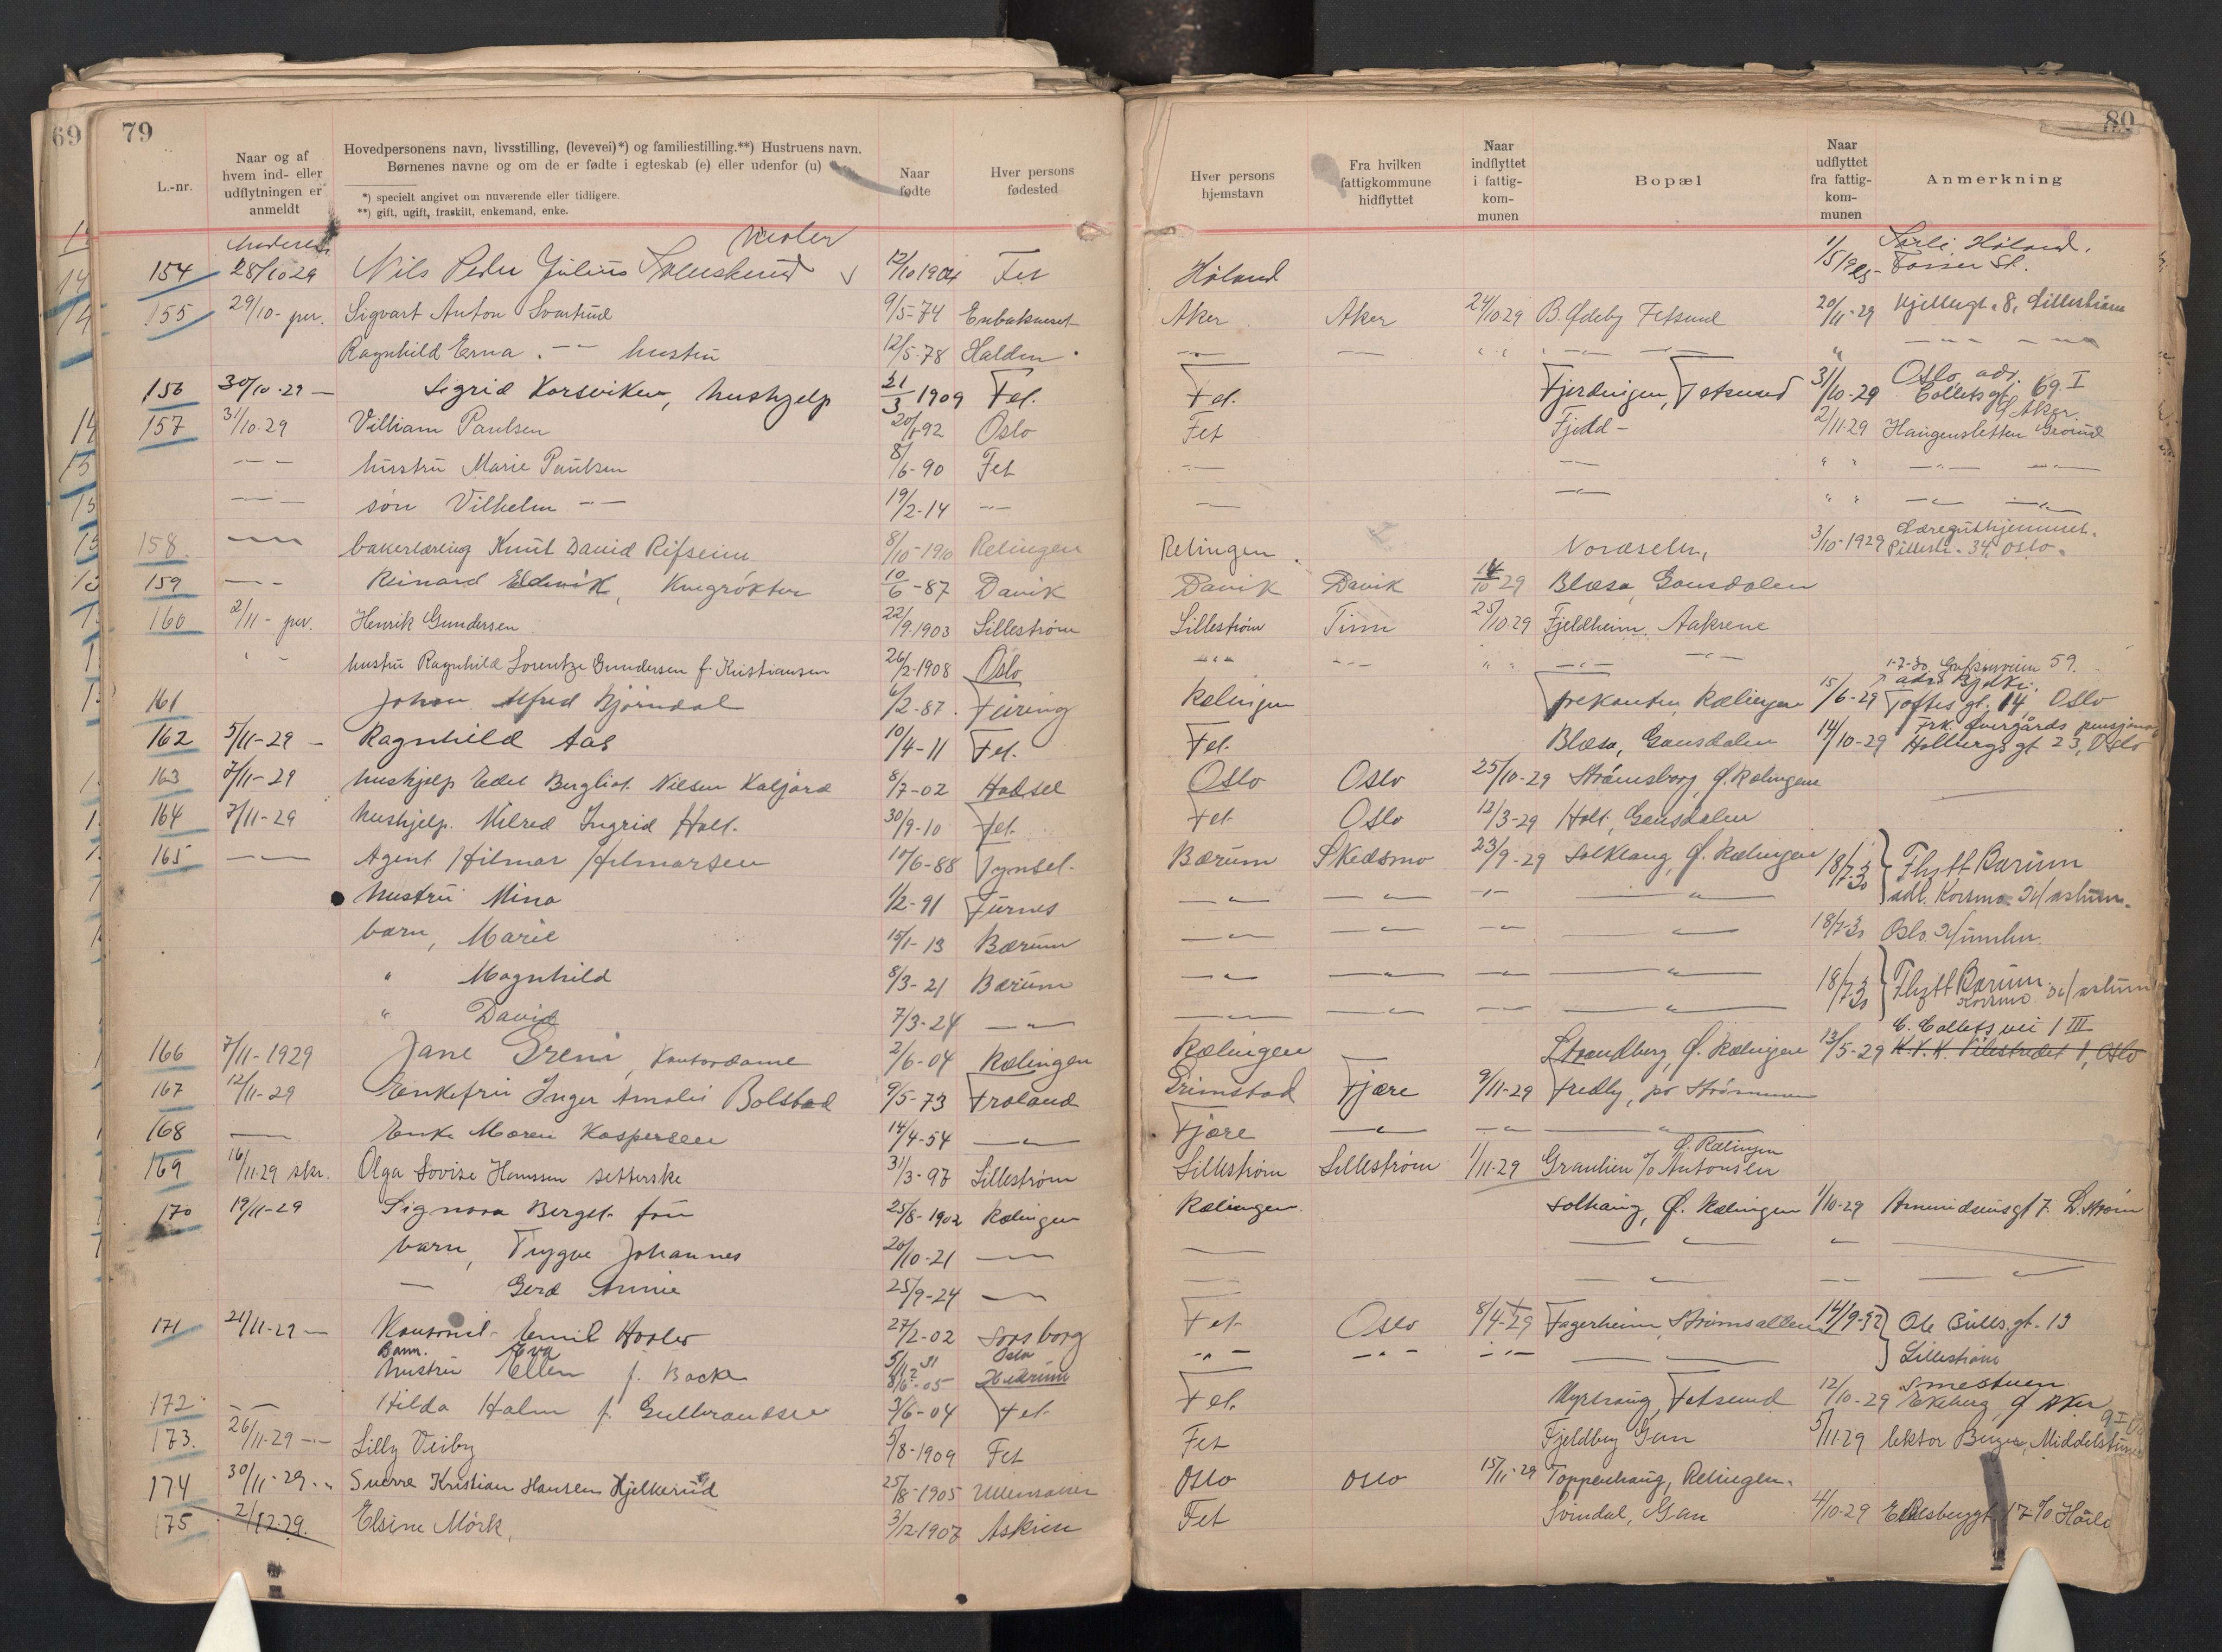 69 79
L.-nr.
Naar og af hvem ind- eller udflytningen er anmeldt
Hovedpersonens navn, livsstilling, (levevei)*) og familiestilling.**) Hustruens navn.
Børnenes navne og om de er fødte i egteskab (e) eller udenfor (u)
*) specielt angivet om nuværende eller tidligere.
**) gift, ugift, fraskilt, enkemand, enke.
Naar fødte
Hver persons fødested
80
Hver persons hjemstavn
Fra hvilken fattigkommune hidflyttet
Naar indflyttet i fattigkommunen
Bopæl
Naar udflyttet fra fattigkommunen
Anmerkning
154 28/10 29 Nils Peder Julius 12/10 1904 Fet Høland
155 29/10- per. Sigvart Anton Svartrud 9/5-74 Enbakneset Aker Aker 24/10 29 B. Ødeby Fetsund 20/11-29 Kjellergt. 8, Lillestrøm
Ragnhild Erna -"- hustru 12/5-78 Halden -"- -"-
156 30/10-29 - Sigrid Korsviken, hushjelp 21/3 1909 Fet. Fet. Fjerdingen, Fetsund 31/10-29 Oslo, adr. Colletsgt. 69 I
157 31/10-29 Villiam Paulsen 20/1-92 Oslo Fet Fjeld - 2/11 29 Haugensletten Grorud Ø Aker.
-"- hustru Marie Paulsen 8/6-90 Fet -"-
-"- søn Vilhelm -"- 19/2-14 -"-
158. -"- bakerlæring Knut David Rifseim 8/10-1910 Relingen Relingen. 3/10-1929 Pilestr. 34, Oslo.
159 -"- Reinard 10/6-87 Davik Davik Davik 14/10 29 Blæsa, Gansdalen
160 2/11- per. Henrik Gundersen 22/9-1903 Lillestrøm Lillestrøm Tinn 25/10-29 Fjeldheim, Aakrene
hustru Ragnhild Lorentze Gundersen f. Kristiansen 26/2-1908 Oslo -"- -"-
161 Johan Alfred Bjørndal 6/2-87 Feiring Rælingen Trekanten, Rælingen 15/6-29 Toftesgt. 14, Oslo
162 5/11-29 - Ragnhild Aas 10/4-11 Fet. Fet. Blæsa, Gansdalen 14/10-29 Holbergsgt 23, Oslo
163 7/11-29 hushjelp Edel Bergliot Nilsen Kaljord 8/7-02 Hadsel Oslo Oslo 25/10-29 Strømsborg, Ø. Rælingen
164 7/11-29 hushjelp. Milred Ingrid Holt. 30/9-10 Fet. Fet. Oslo 12/3-29 Holt, Gansdalen
165 -"- Agent Hilmar Hilmarsen 17/6-88 Tynset. Bærum Skedsmo 23/9-29 Solhaug, Ø. Rælingen 18/7-30 Flytt Bærum
hustru Mina 1/2-91 Furnes
barn, Marie 15/1-13 Bærum 18/7-30 Oslo
" Magnhild 8/3-21 Bærum 18/7-30 Flytt Bærum
" David 7/3-24 -"-
166 7/11-1929 Jane Greni, Kontordame 2/6-04 Rælingen Rælingen Strandberg, Ø. Rælingen 13/5-29 C. Collets vei 1 III
167 12/11-29 Enkefru Inger Amalie Bolstad 9/5-73 Froland Grimstad Fjære 9/11-29 Fredly, pr Strømmen
168 -"- Enke Maren Kaspersen 14/4-54 -"- Fjære -"- -"-
169 16/11 29 skr. Olga Lovise Hanssen setterske 31/3-97 Lillestrøm Lillestrøm Lillestrøm 1/11-29 Granlien c/o Antonsen Ø. Rælingen
170 19/11-29 Signora Berget fru 25/8-1902 Rælingen Rælingen Solhaug, Ø. Rælingen 1/10-29 Amundsensgt 7. L.strøm
barn, Trygve Johannes 20/10-21 -"-
- Gerd Annie 25/9-24 -"-
171 21/11-29 - Emil Hooler 27/2-02 Sarpsborg Fet. Oslo 8/4-29 Fagerheim, Strømsalleen 14/9-32 Ole Bulls gt. 13
Barn. Eva 5/11 31 Oslo Lillestrøm
hustru Ellen f. Backe 8/6-05
172. -"- Hilda Holm f. Gulbrandsen 3/6-04 Fet. Fet. Myrhaug, Fetsund 12/10-29 Smestuen Ekeberg, Ø Aker
173. 26/11-29 -"- Lilly Veiby 5/8-1909 Fet Fet Fjeldbey Gan 5/11 29 lektor Berger,
174 30/11-29 -"- Sverre Kristian Hansen Hjelkerud 25/8-1905 Ullensaker Oslo Oslo 15/11-29 Toppenhaug, Relingen.
175 2/12-29. Elsine Mörk, 3/12-1907 Askim Fet Svindal, Gan 4/10-29